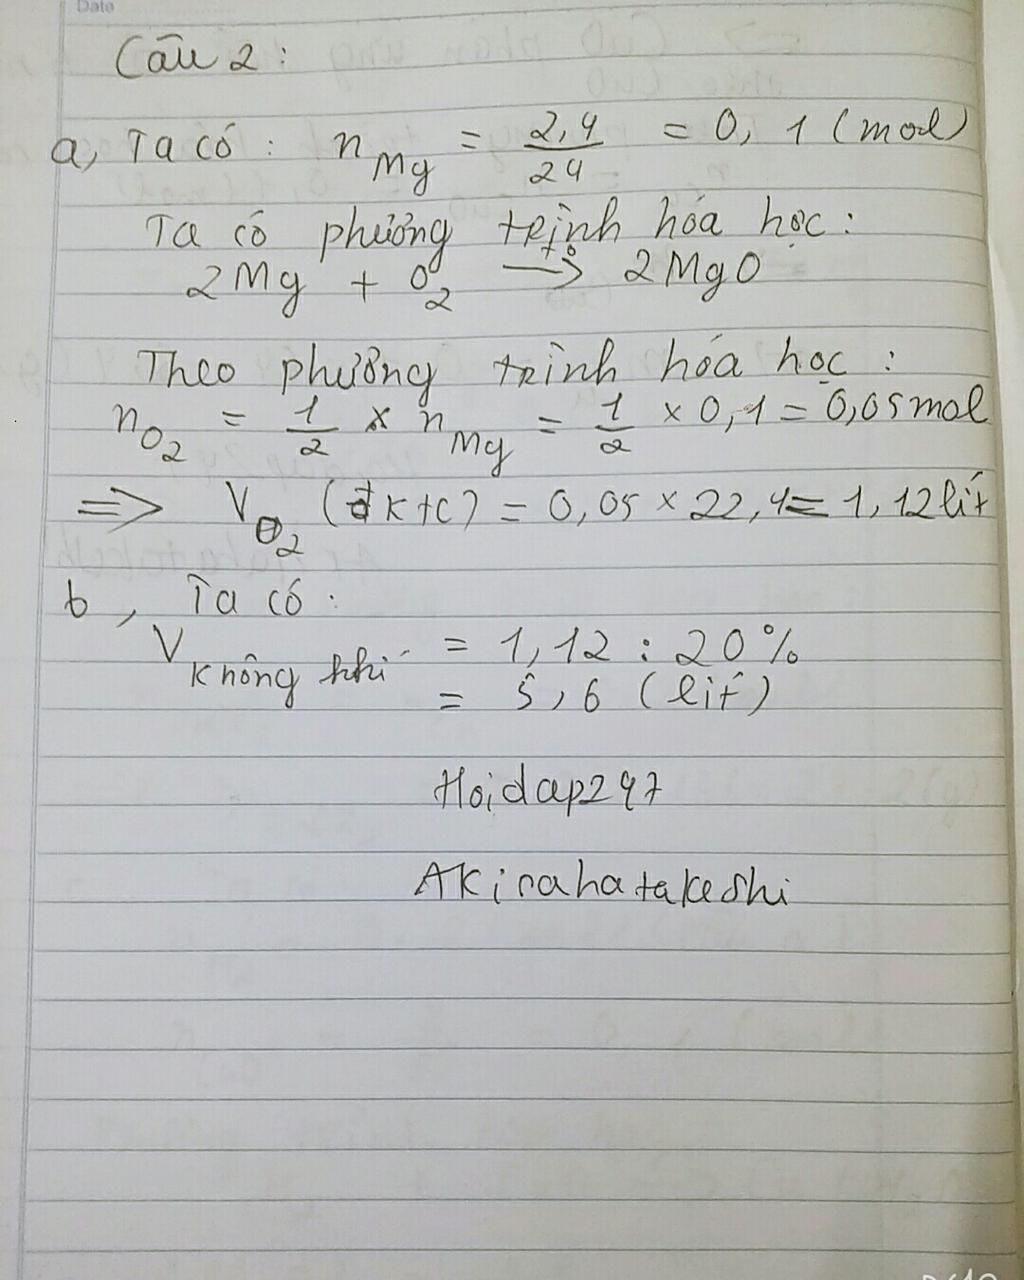 Date
Câu 2:
a, Ta có: n Mg = 2,4/24 = 0,1 (mol)
Ta có phương trình hóa học:
2Mg + O2 →(t°) 2MgO
Theo phương trình hóa học:
nO2 = 1/2 × nMg = 1/2 × 0,1 = 0,05 mol
=> VO2 (đktc) = 0,05 × 22,4 = 1,12 lít
b, Ta có:
V không khí = 1,12 : 20%
= 5,6 (lít)
Hoidap247
Akirahatakeshi